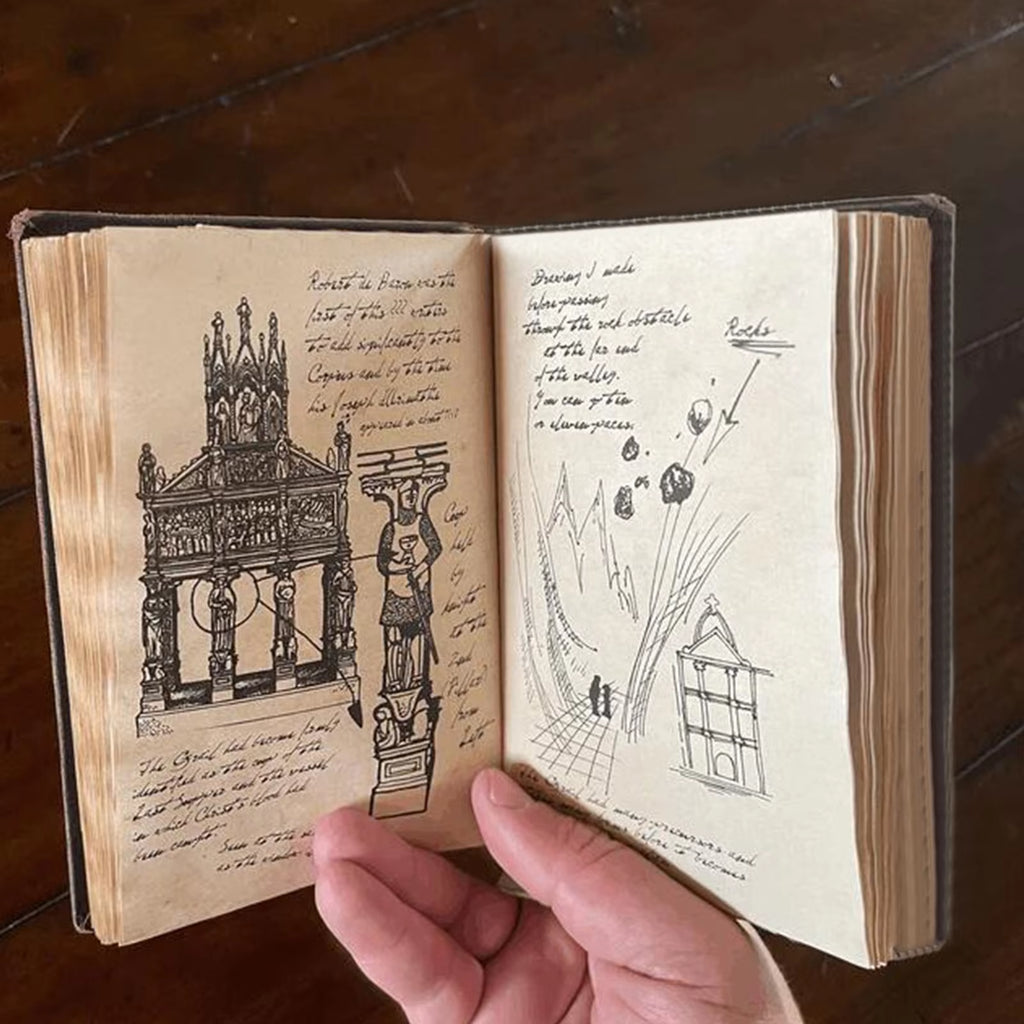 Robert de Boron was the
first of this writers
to add significantly to the
Corpus and by the time
his Joseph
appeared in about
Cup
held
by
knight
at the
2nd
from
Left
The Grail had become firmly
identified as the cup of the
Last Supper and the vessel
in which Christ's blood had
been caught.
Seen at the
as the
Drawing I made
before passing
through the rock obstacle
at the far end
of the valley.
You can go ten
or eleven paces.
Rocks
had many precursors and
before it becomes